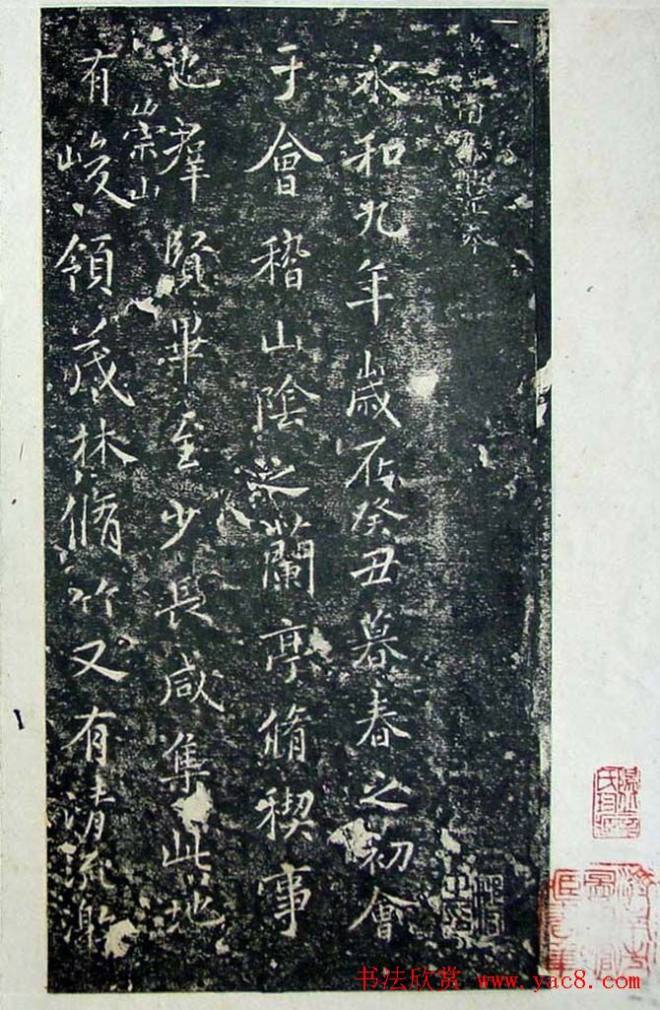 永和九年歲在癸丑暮春之初會
于會稽山陰之蘭亭脩稧事
也羣賢畢至少長咸集此地
有崇山峻領茂林脩竹又有清流激
书法欣赏 www.yac8.com